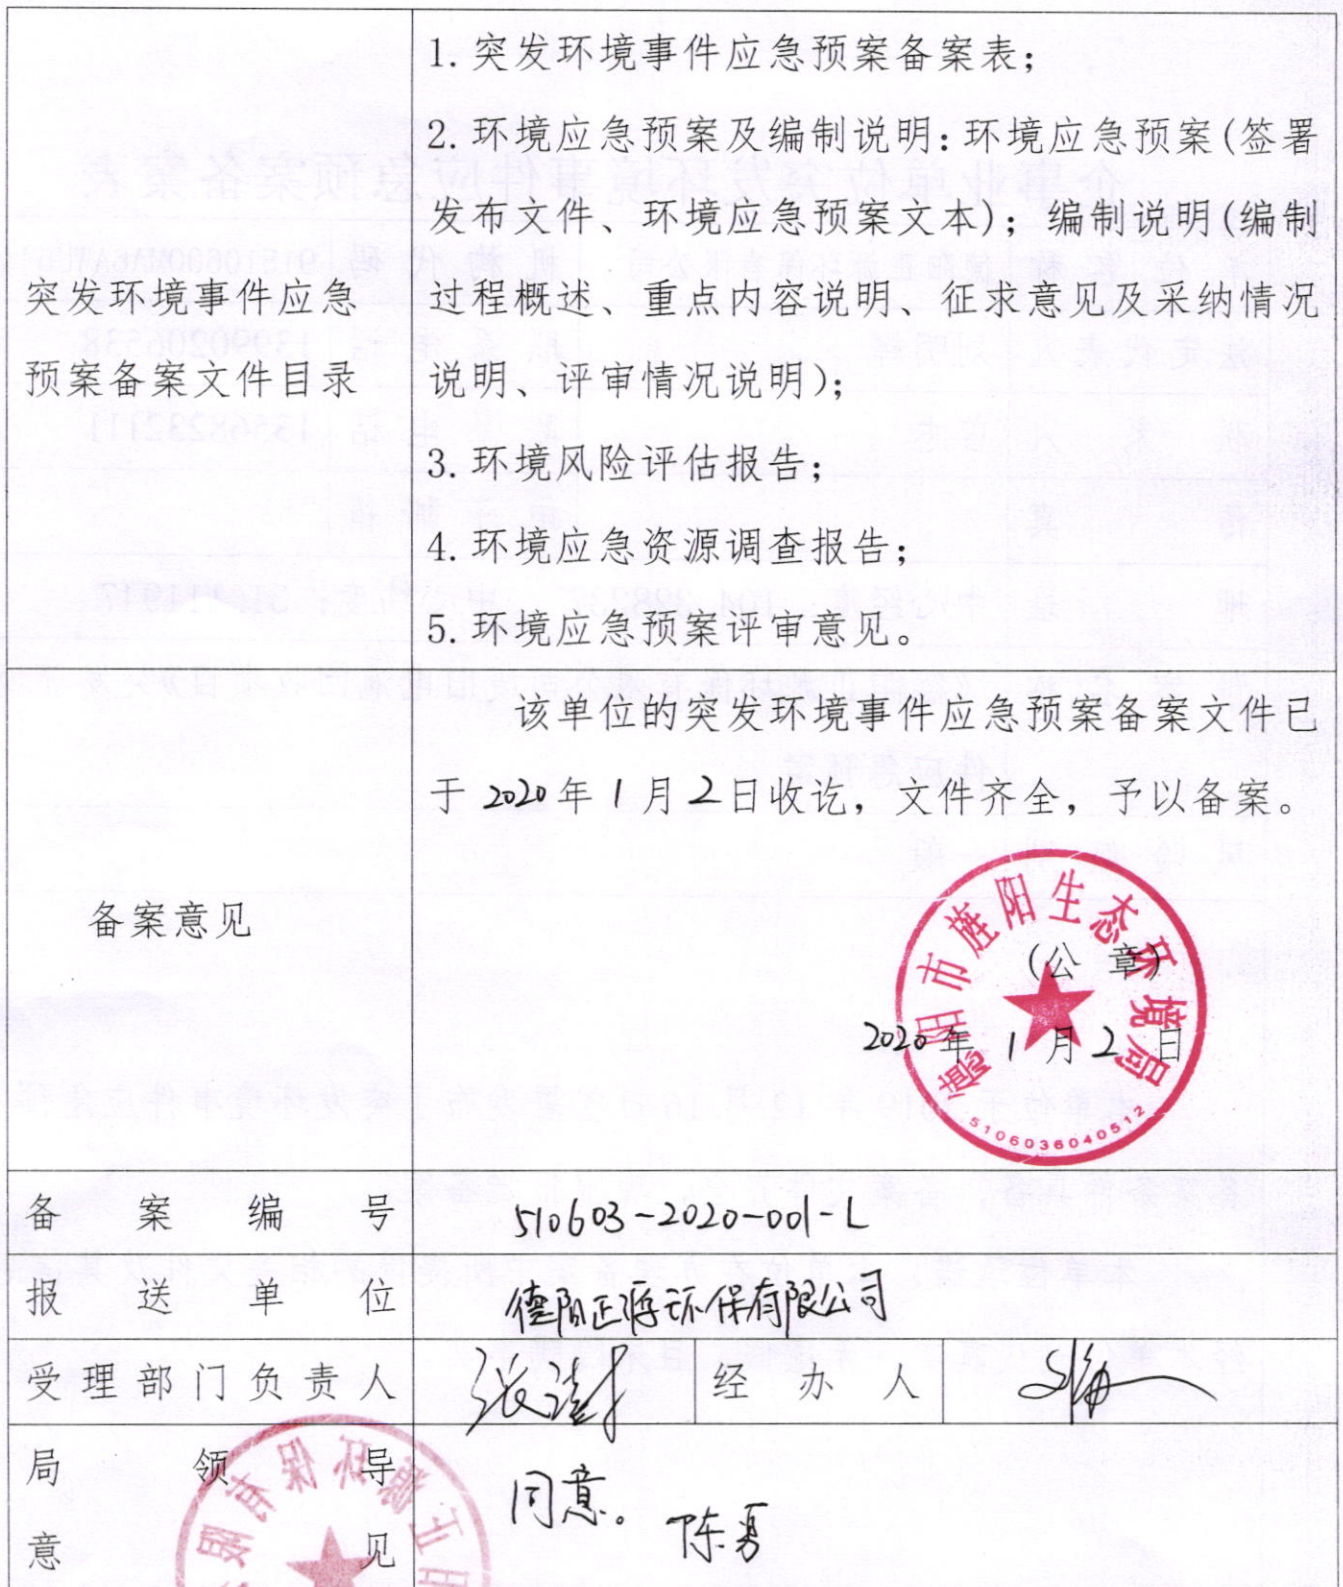 突发环境事件应急
预案备案文件目录
1. 突发环境事件应急预案备案表；
2. 环境应急预案及编制说明：环境应急预案（签署
发布文件、环境应急预案文本）；编制说明（编制
过程概述、重点内容说明、征求意见及采纳情况
说明、评审情况说明）；
3. 环境风险评估报告；
4. 环境应急资源调查报告；
5. 环境应急预案评审意见。
备案意见
该单位的突发环境事件应急预案备案文件已
于 2020 年 1 月 2 日收讫，文件齐全，予以备案。
德阳市旌阳生态环境局
（公 章）
2020 年 1 月 2 日
5106036040512
备 案 编 号
510603-2020-001-L
报 送 单 位
德阳正源环保有限公司
受理部门负责人
经 办 人
局 领 导
意 见
同意。 陈勇